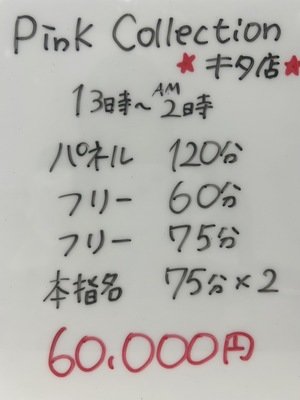 Pink Collection
★キタ店★
13時〜AM2時
パネル 120分
フリー 60分
フリー 75分
本指名 75分×2
60.000円